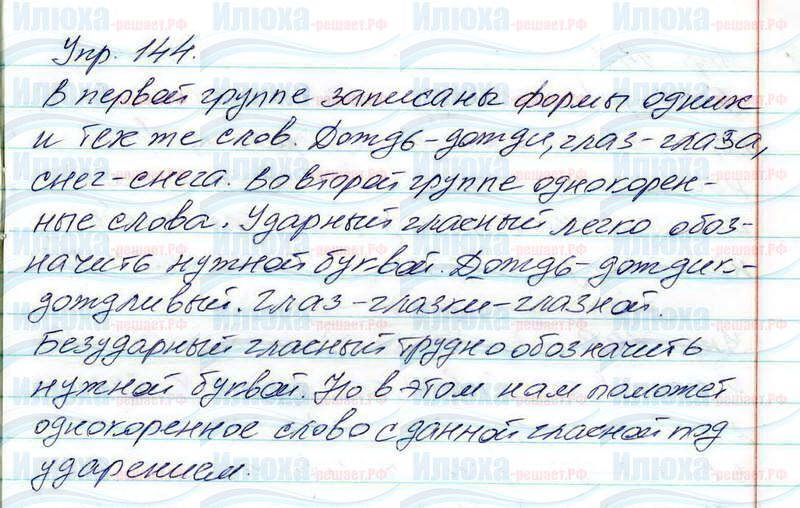 Упр. 144.
В первой группе записаны формы одних
и тех же слов. Дождь-дожди, глаз-глаза,
снег-снега. Во второй группе однокорен-
ные слова. Ударный гласный легко обоз-
начить нужной буквой. Дождь-дождик-
дождливый. Глаз-глазки-глазной.
Безударный гласный трудно обозначить
нужной буквой. Но в этом нам поможет
однокоренное слово с данной гласной под
ударением.